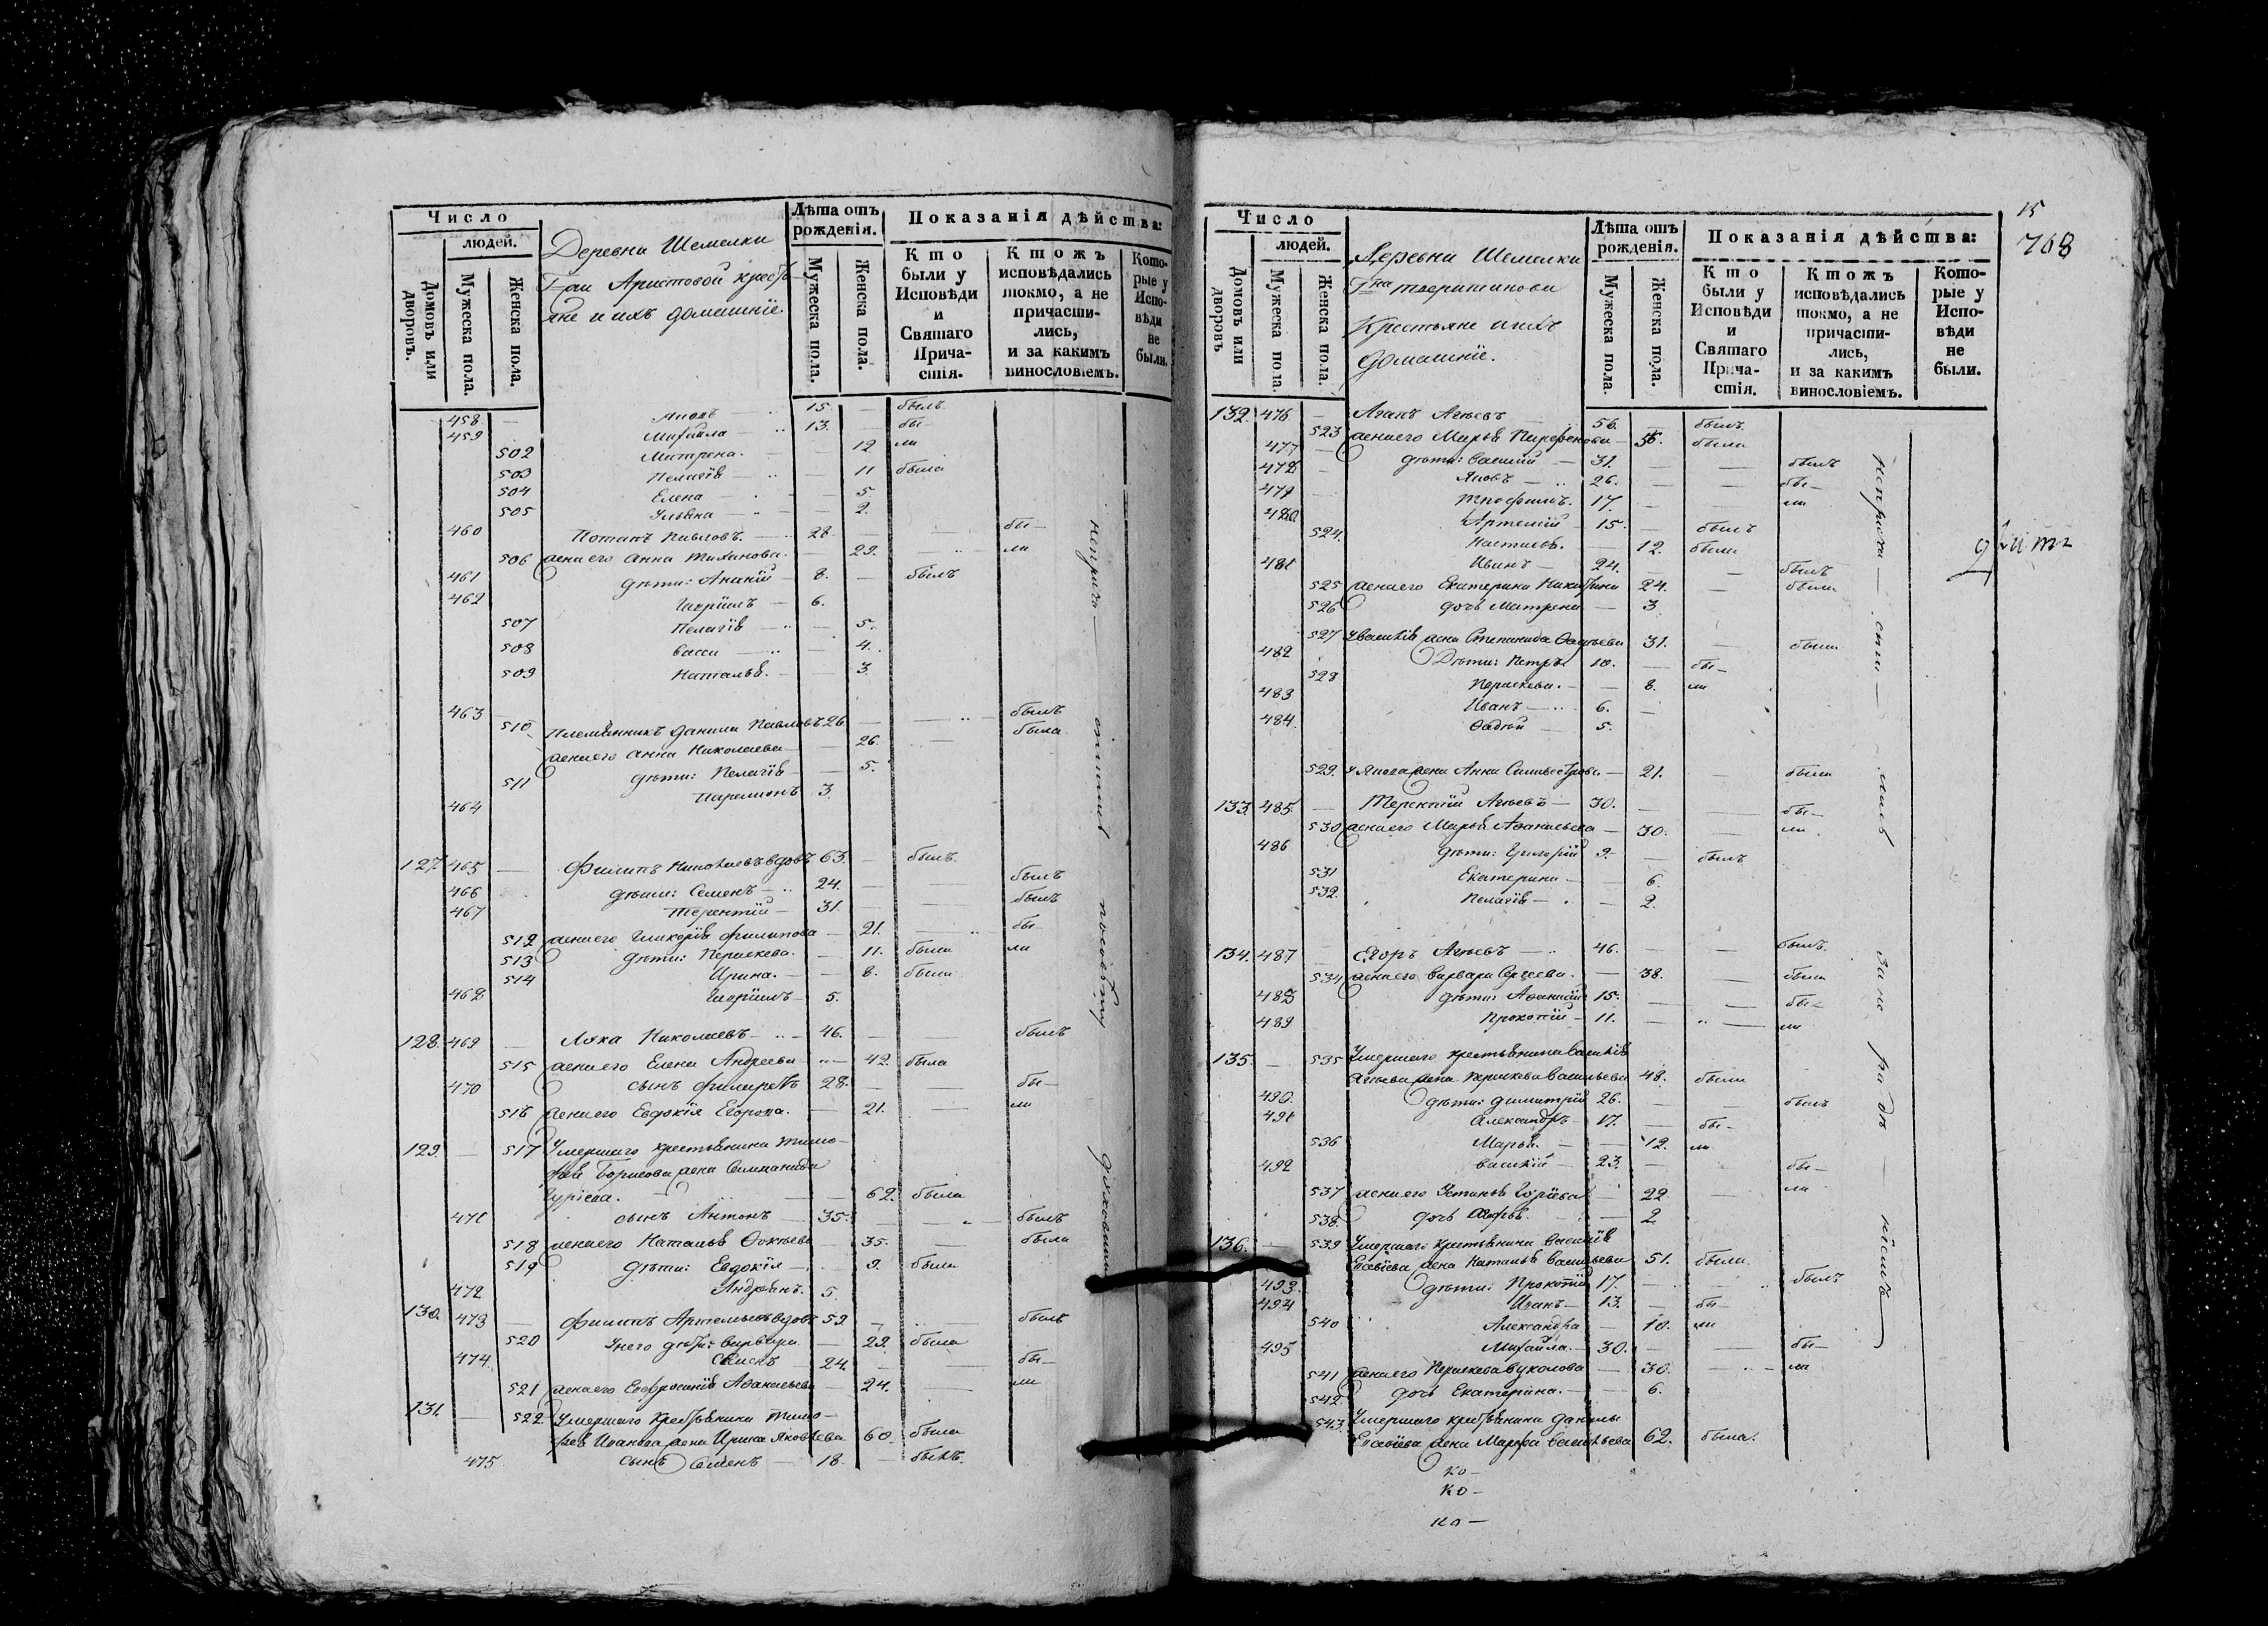 Число
людей.
Домовъ или дворовъ.
Мужеска пола.
Женска пола.
Деревни Шемелки
Гжи Аристовой крестья
яне и ихъ домашніе.
Лѣта отъ рожденія.
Мужеска пола.
Женска пола.
Показанія дѣйства:
Кто были у Исповѣди и Святаго Прича-стія.
Ктожъ исповѣдались токмо, а не причасти-лись, и за какимъ винословіемъ.
Кото-рые у Испо-вѣди не были.
458 — 15. — былъ
459 Михайла — 13. — бы-
502 Матрона. — 12 ли
503 Пелагія — 11 была
504 Елена — 5.
505 Ульяна — 2.
460 Потапъ Павловъ. — 28 — бы-
506 жена его Анна — 29. — ли
461 дѣти: Ананій — 8. — былъ
462 6.
507 Пелагія — 5.
508 Васса — 4.
509 Наталья. — 3.
463 Племянникъ Данила Павловъ 26. — былъ
510 жена его Анна Николаева — 26. — была
511 дѣти: Пелагія — 5.
464 Парамонъ 3.
127. 465 — Филипъ вдовъ 63. — былъ.
466 дѣти: Семенъ — 24. — былъ
467 Терентій — 31. — былъ
512 жена его Гликерія Филипова — 21. — бы-
513 дѣти: Параскева. — 11. была ли
514 Ирина. — 8. была
468 5.
128. 469 — Лука Николаевъ — 46. — былъ
515 жена его Елена Андреева — 42. была
470 сынъ Филаретъ 28. — бы-
516 жена его Евдокія Егорова. — 21. — ли
129. — 517 Умершаго крестьянина Тимо-
фея Борисова жена
Гуріева. — 62. была
471 сынъ Антонъ — 35. — былъ
518 жена его Наталья — 35. — была
519 дѣти: Евдокія — 9. была
472 Андрѣянъ. 5.
130. 473 — Филипъ Артемьевъ вдовъ 59 — былъ
520 Унего дѣти: Варвара — 29. была
474. 24. — бы-
521 жена его Евфросинія Аѳанасьева — 24. — ли
131. — 522 Умершаго крестьянина Тимо-
фея Иванова жена Ирина Яковлева 60. была
475 сынъ Семенъ — 18. — былъ.
непричастились по совѣту духовника
Число
людей.
Домовъ или дворовъ
Мужеска пола.
Женска пола.
Деревни Шемелки
Крестьяне и ихъ
домашніе.
Лѣта отъ рожденія.
Мужеска пола.
Женска пола.
Показанія дѣйства:
Кто были у Исповѣди и Святаго Прича-стія.
Ктожъ исповѣдались токмо, а не причасти-лись, и за какимъ винословіемъ.
Кото-рые у Испо-вѣди не были.
15
768
132. 476 — 56. — былъ.
523 жена его Марья Парфенова — была
477 дѣти: Василій — 31. — былъ
478 — Яковъ — 26. — бы-
479 — Трофимъ. 17. — ли
480 Артемій — 15. — былъ
524. 12. была
481 Иванъ — 24. — былъ
525 жена его Екатерина Никитина 24. — была
526 дочь Матрена — 3
527 У Василія жена Степанида 31. — была
482 Дѣти: Петръ 10. — бы-
528 Параскева. — 8. ли
483 Иванъ — 6. —
484 5.
529. У Якова жена Анна Сильвестрова — 21. — была
133. 485. — Терентій — 30. — бы-
530 жена его Марья Аѳанасьева — 30. — ли
486 дѣти: Григорій 9. — былъ
531 Екатерина — 6.
532. Пелагія — 2.
134. 487 — Егоръ — 46. — былъ.
534 жена его Варвара Сергеева. — 38. — была
488 дѣти: Аѳанасій 15. — бы-
489 Прокопій — 11. — ли
135. — 535 Умершаго крестьянина Василія
жена Параскева Васильева 48. была
490. дѣти: Димитрій 26. — былъ
491 Александръ — 17. — бы-
536 Марья. — 12. ли
492 Василій — 23. — бы-
537 жена его Устинья — 22 — ли
538. дочь — 2
136. — 539 Умершаго крестьянина Василія
жена Наталья Васильева 51. была
493. дѣти: Прокопій 17. — былъ
494 Иванъ — 13. — бы-
540 Александра — 10. ли
495 Михайла. — 30. — бы-
541 жена его Параскева Вуколова — 30. — ли
542 дочь Екатерина. — 6.
543. Умершаго крестьянина Данилы
жена Марфа Васильева 62. была.
ко-
ко-
ко-